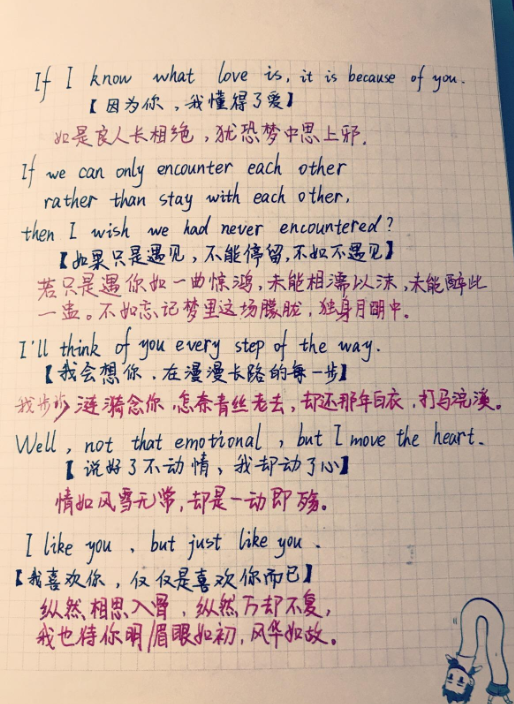 If I know what love is, it is because of you.
【因为你，我懂得了爱】
如是良人长相绝，犹恐梦中思上邪.
If we can only encounter each other
rather than stay with each other,
then I wish we had never encountered?
【如果只是遇见，不能停留,不如不遇见】
若只是遇你如一曲惊鸿,未能相濡以沫,未能醉此
一盏。不如忘记梦里这场朦胧，独身月明中。
I'll think of you every step of the way.
【我会想你，在漫漫长路的每一步】
我步步涟漪念你,怎奈青丝老去，却还那年白衣，打马浣溪。
Well, not that emotional, but I move the heart.
【说好了不动情、我却动了心】
情如风雪无常，却是一动即殇。
I like you, but just like you.
【我喜欢你，仅仅是喜欢你而已】
纵然相思入骨，纵然万却不复，
我也待你明眉眼如初，风华如故。